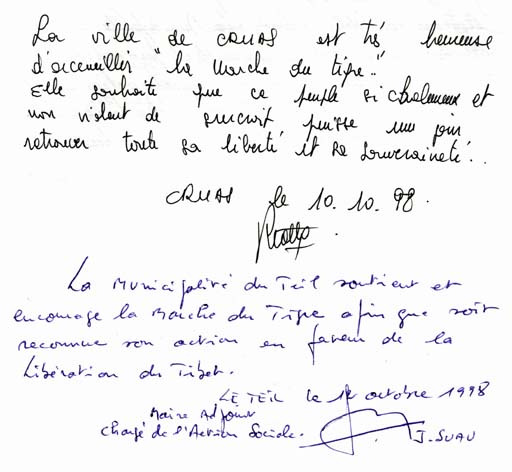 La ville de CRUAS est très heureuse
d'accueillir "la Marche du tigre".
Elle souhaite que ce peuple si chaleureux et
non violent de puisse un jour
retrouver toute sa liberté et sa souveraineté..
CRUAS le 10.10.98.
La Municipalité du Teil soutient et
encourage la Marche du Tigre afin que soit
reconnue son action en faveur de la
Libération du Tibet.
LE TEIL le octobre 1998
Maire Adjoint
Chargé de l'Action Sociale. J. SUAU